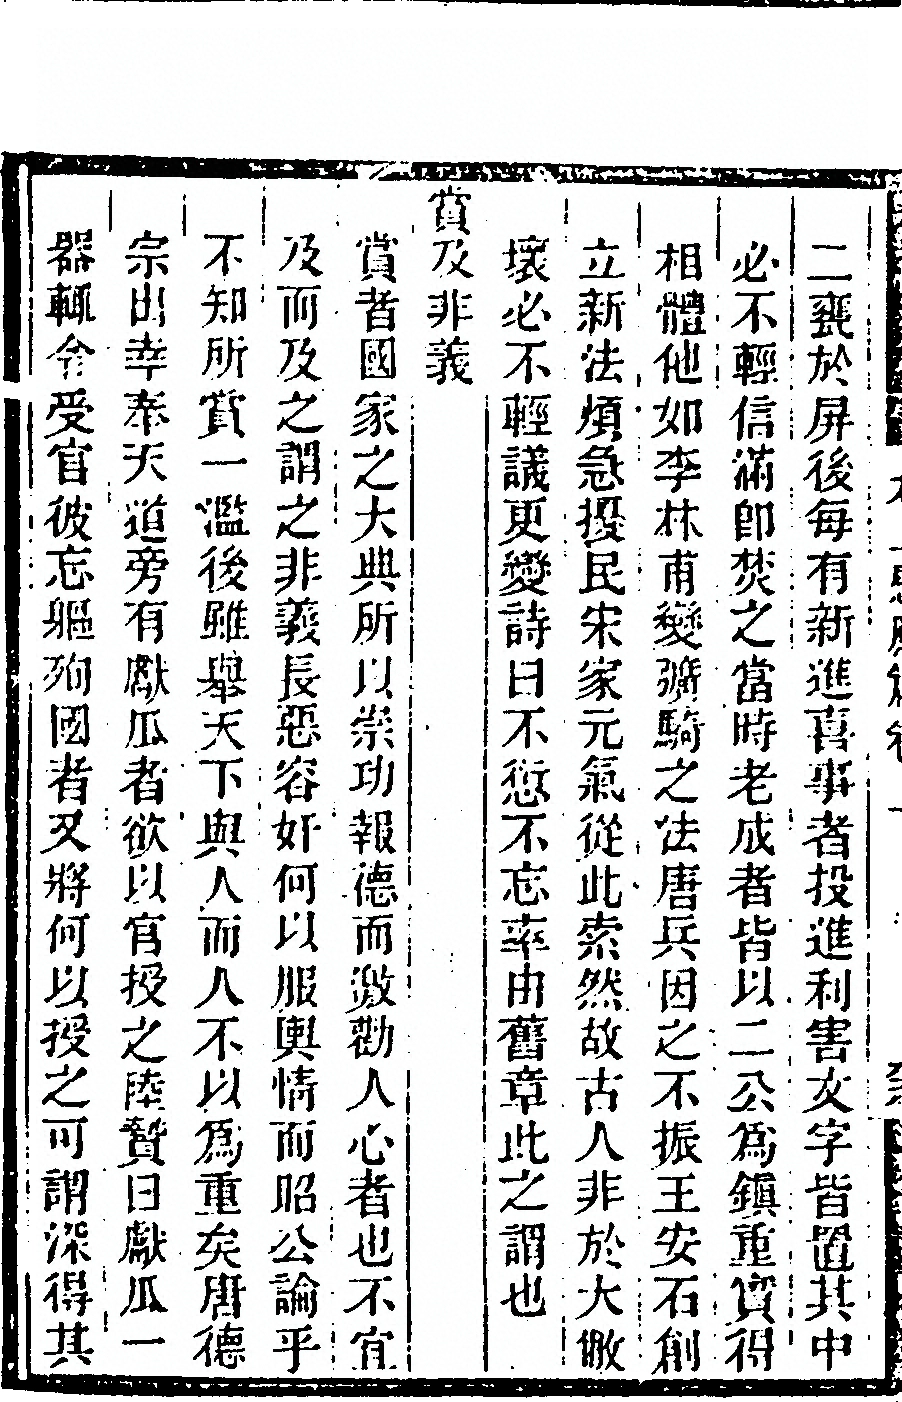 二甕於屏後每有新進喜事者投進利害文字皆置其中
必不輕信滿即焚之當時老成者皆以二公為鎮重實得
相體他如李林甫變彍騎之法唐兵因之不振王安石創
立新法煩急擾民宋家元氣從此索然故古人非於大敝
壞必不輕議更變詩曰不愆不忘率由舊章此之謂也
賞及非義
賞者國家之大典所以崇功報德而激勸人心者也不宜
及而及之謂之非義長惡容奸何以服輿情而昭公論乎
不知所賞一濫後雖舉天下與人而人不以為重矣唐德
宗出幸奉天道旁有獻瓜者欲以官授之陸贄曰獻瓜一
器輒令受官彼忘軀殉國者又將何以授之可謂深得其